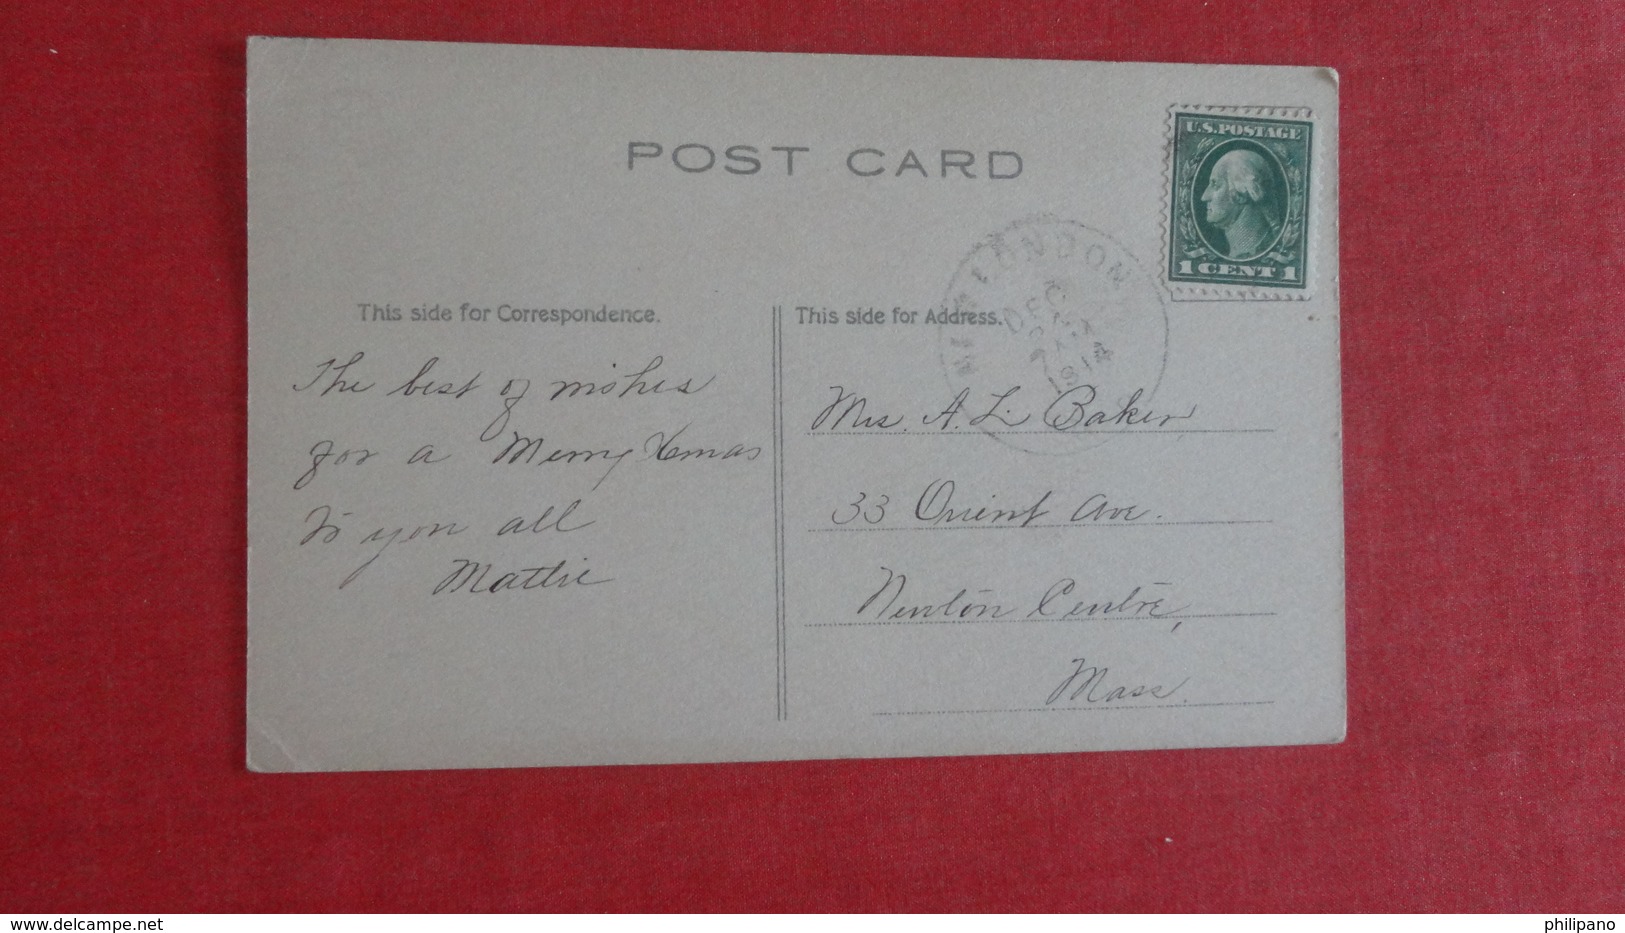 POST CARD
U.S. POSTAGE
1 CENT 1
NEW LONDON
DEC
1914
This side for Correspondence.
This side for Address.
The best of wishes
for a Merry Xmas
to you all
Mattie
Mrs. A. L. Baker
33 Orient Ave.
Newton Centre,
Mass.
www.delcampe.net
philipano